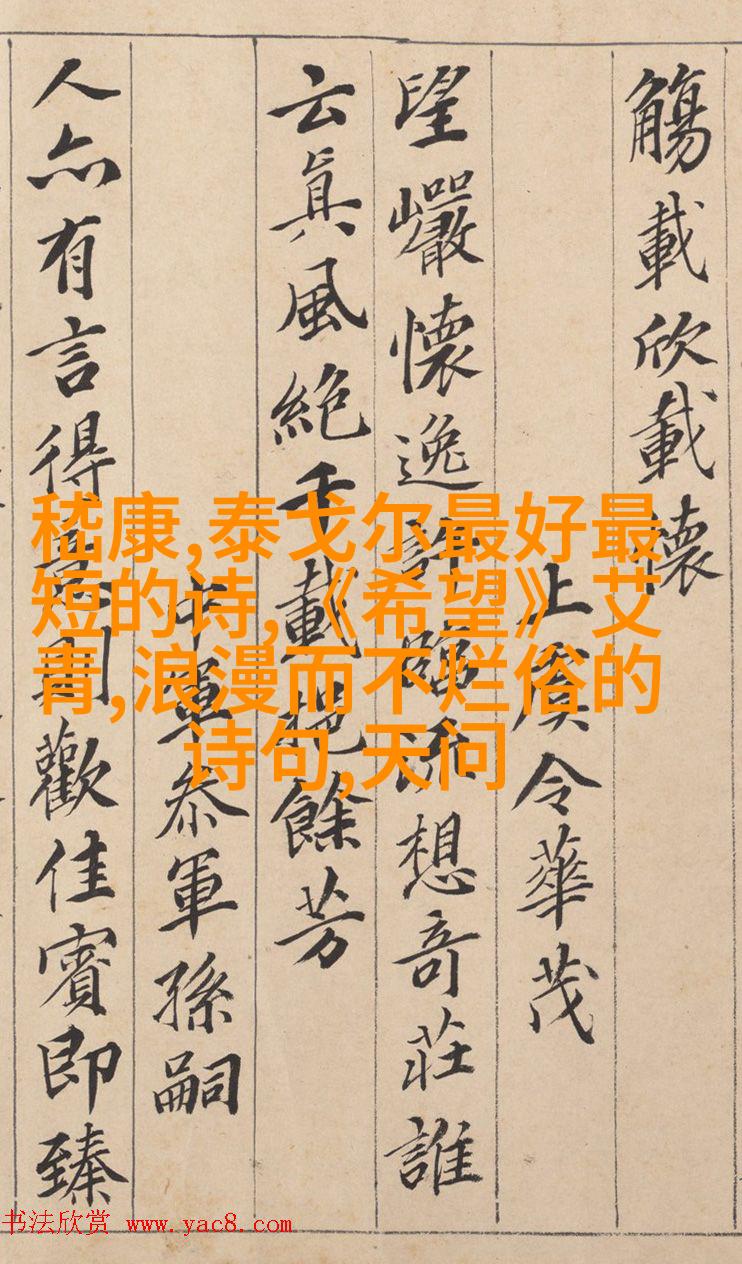 觴載欣載懷
上虞令華茂
望巖懷逸許臨流想奇莊誰
云眞風絶千載挹餘芳
中軍叅軍孫嗣
人亦有言得意則歡佳賓即臻
嵇康,泰戈尔最好最
短的诗,《希望》艾
青,浪漫而不烂俗的
诗句,天问
书法欣赏 www.yac8.com